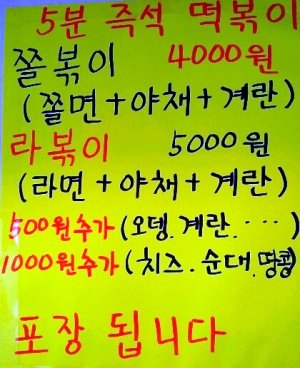 5분 즉석 떡볶이
쫄볶이 4000원
(쫄면+야채+계란)
라볶이 5000원
(라면+야채+계란)
500원추가(오뎅.계란.···)
1000원추가(치즈.순대.땅콩)
포장 됩니다